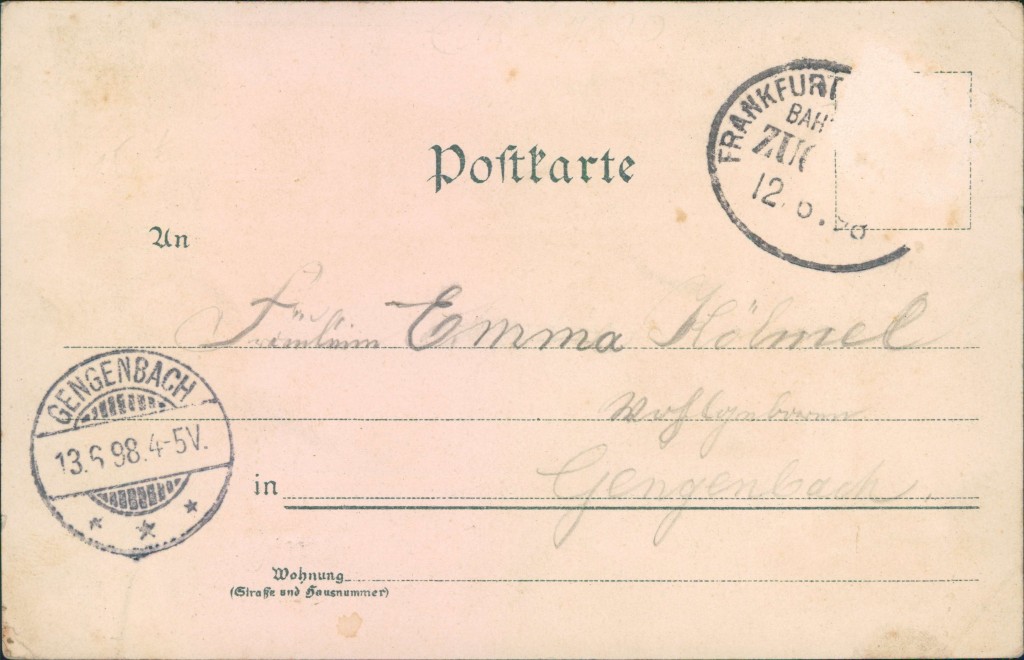 FRANKFURT
BAH
ZUG
12.6.98
Postkarte
An
Fräulein Emma Hölmel
GENGENBACH
13.6.98.4-5V.
Wohlgeboren
in Gengenbach.
Wohnung
(Straße und Hausnummer)